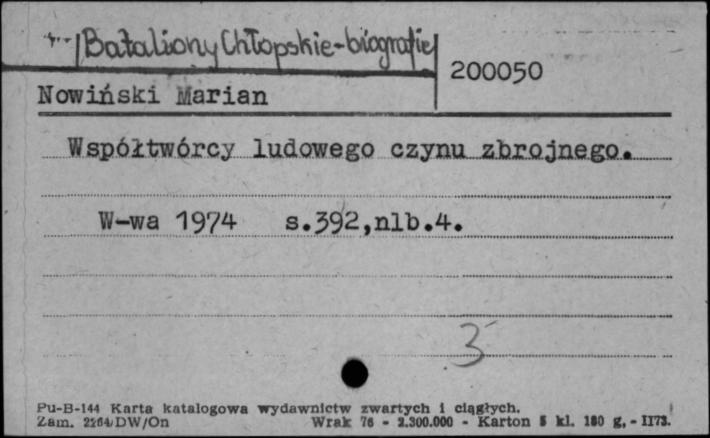 Bataliony Chłopskie-biografie
200050
Nowiński Marian
Współtwórcy ludowego czynu zbrojnego.
W-wa 1974 s.392,nlb.4.
3
Pu-B-144 Karta katalogowa wydawnictw zwartych i ciągłych.
Zam. 2264/DW/On Wrak 76 - 2.300.000 - Karton kl. 180 g. - II73.